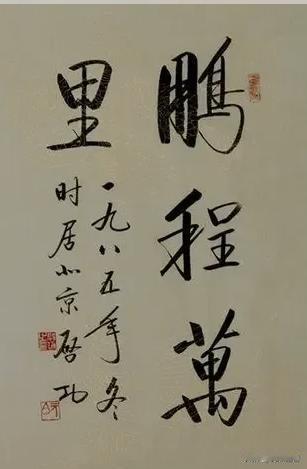 鹏程萬
里
一九八五年冬
时居北京启功